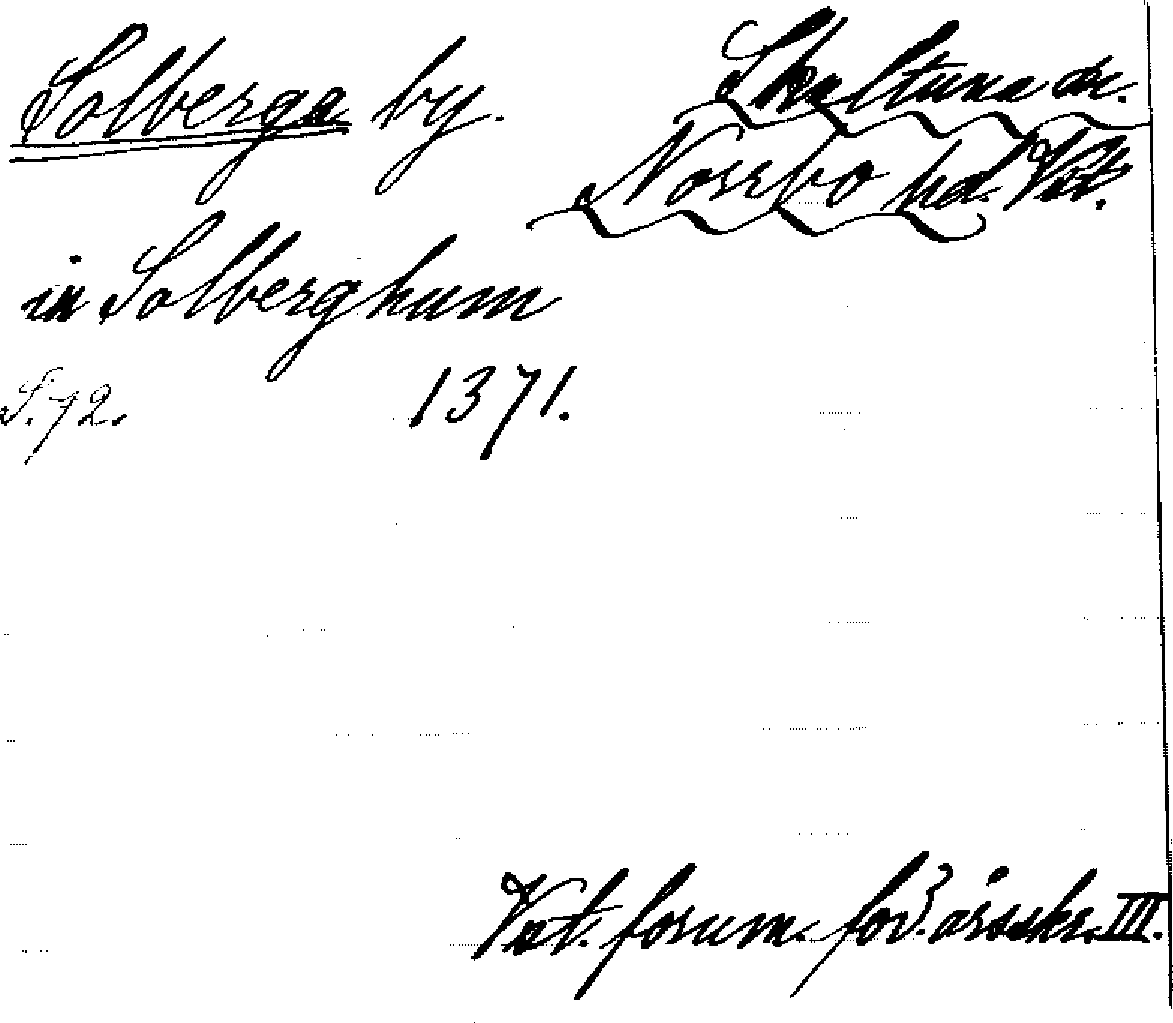 Solberga by.
Skultuna sn.
Norrbo hd. Vst.
in Solberghum
S. 72.
1371.
Vst. fornm. för. årsskr. III.